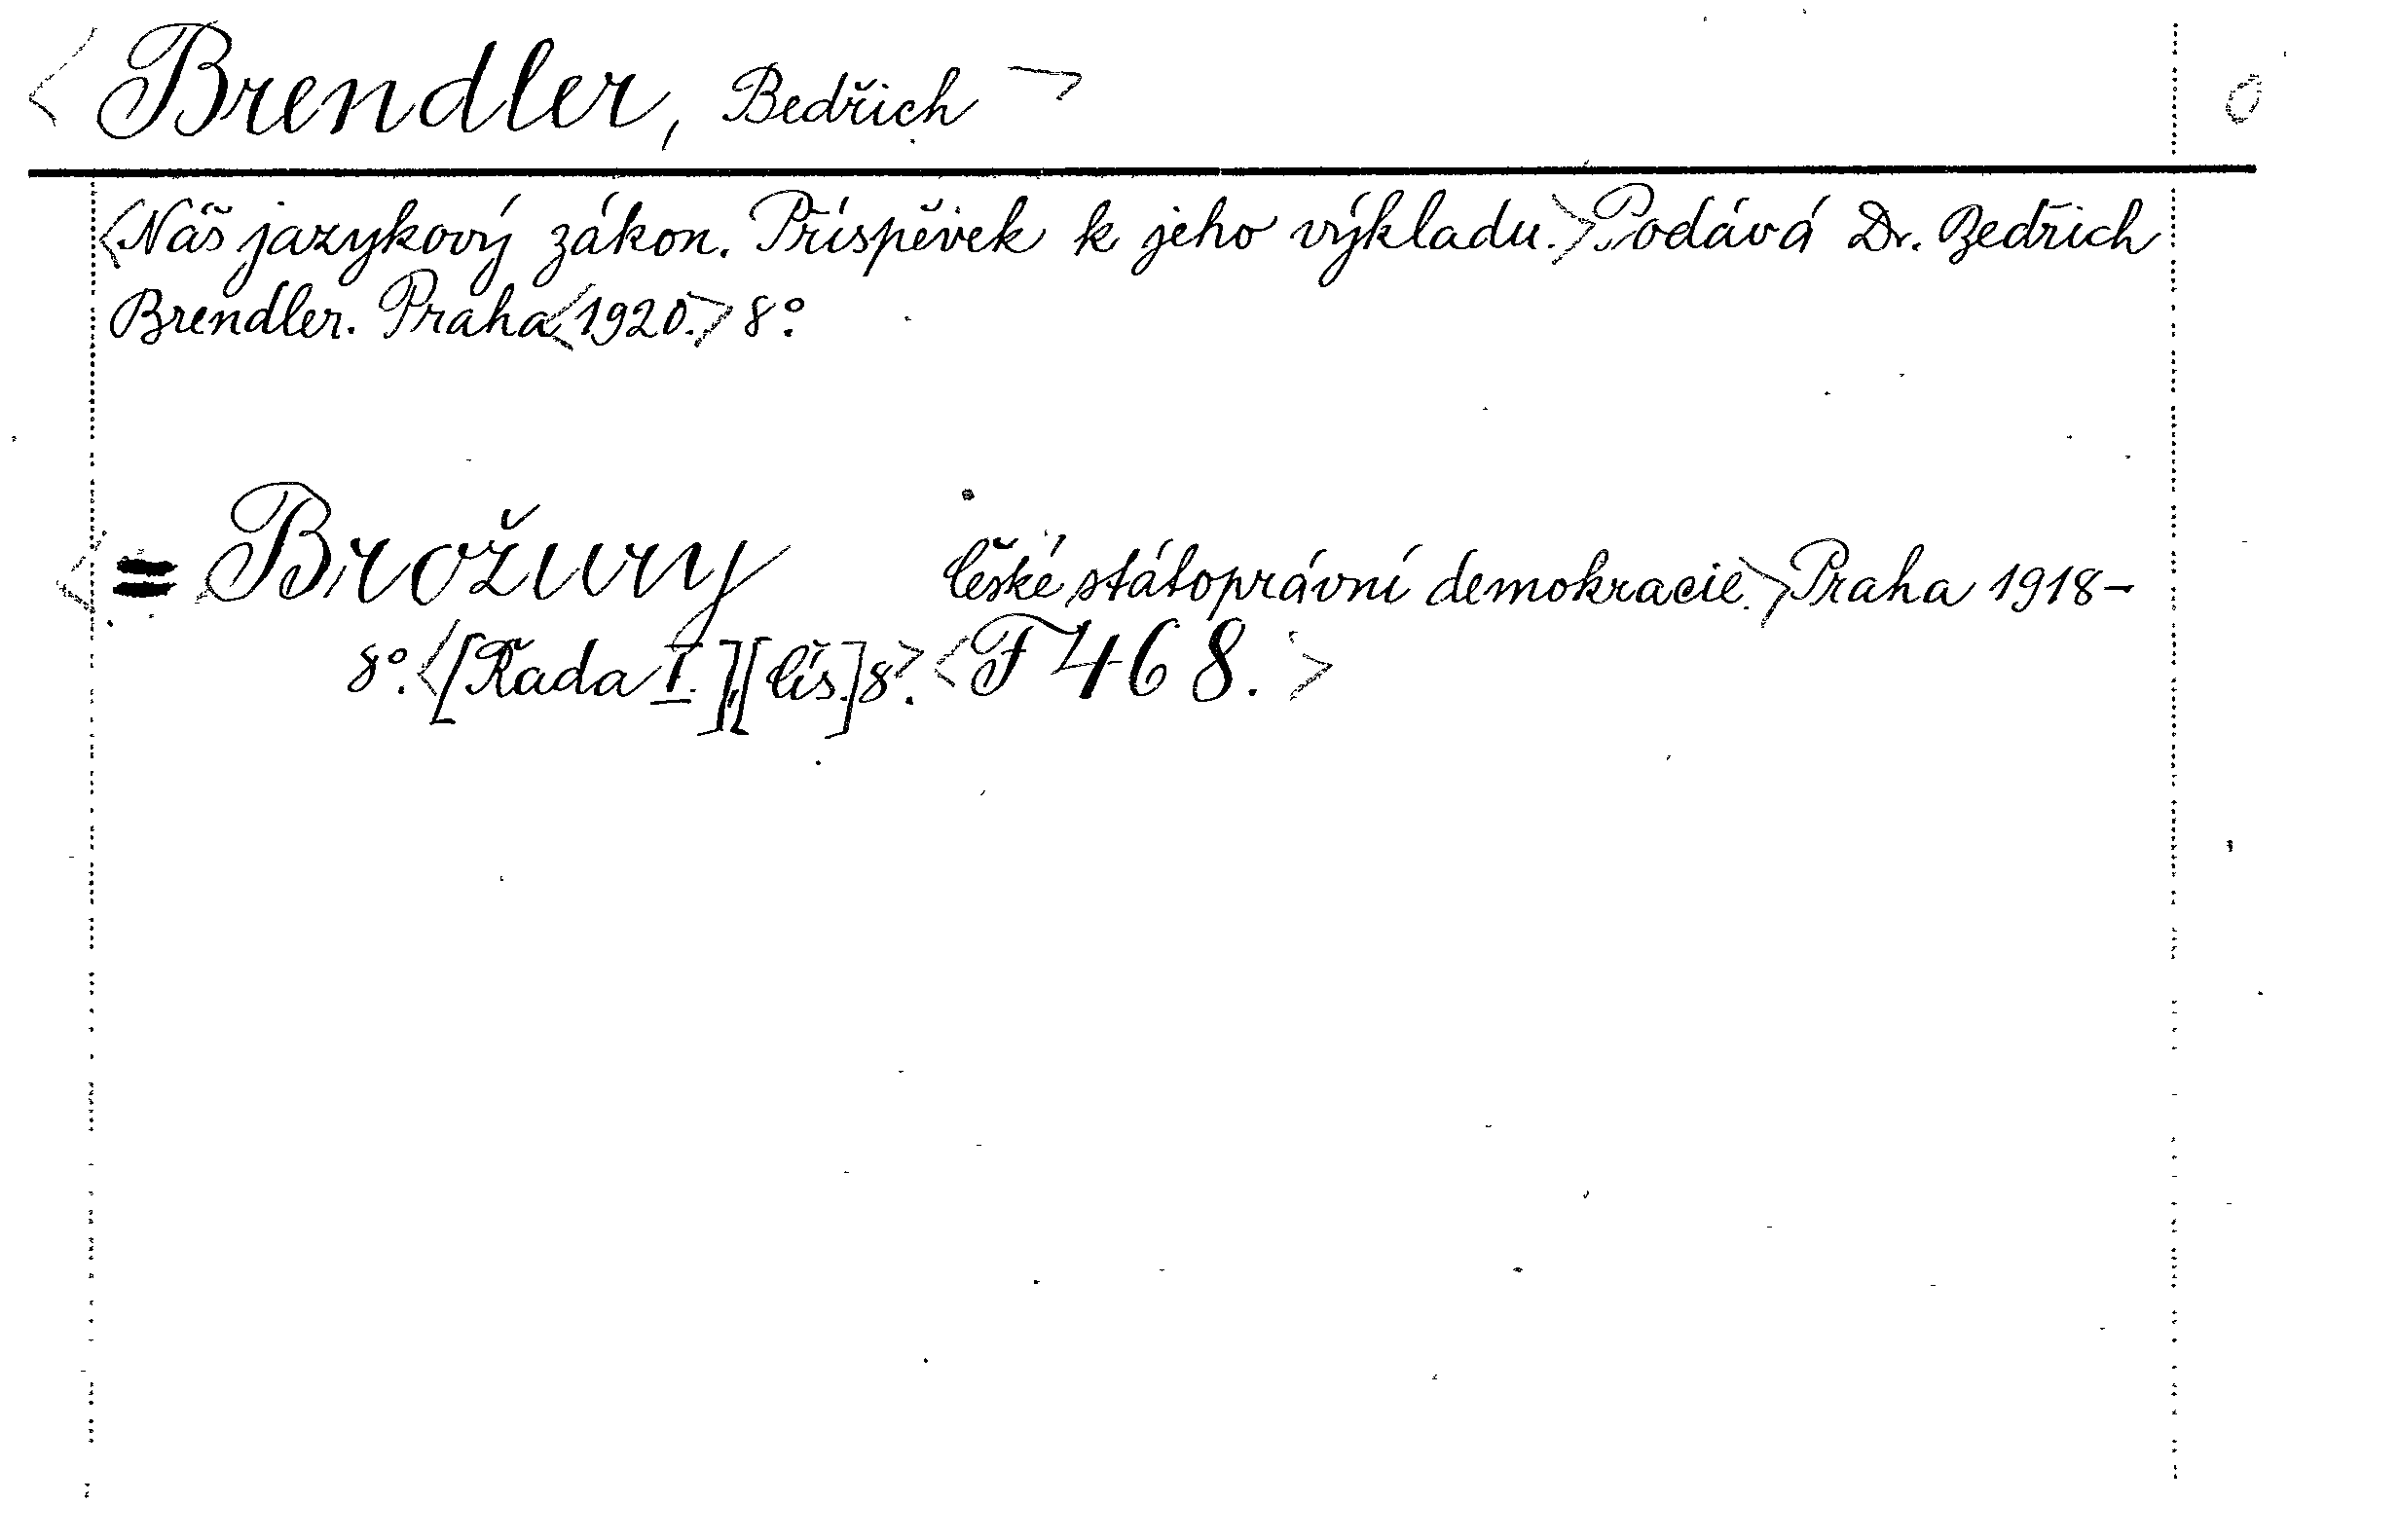 <Brendler, Bedřich> 0
<Náš jazykový zákon. Příspěvek k jeho výkladu.> Podává Dr. Bedřich
Brendler. Praha <1920.> 8°.
<= Brožury české státoprávní demokracie.> Praha 1918–
8°. <[Řada I.],[čís.] 8>. <F 468.>